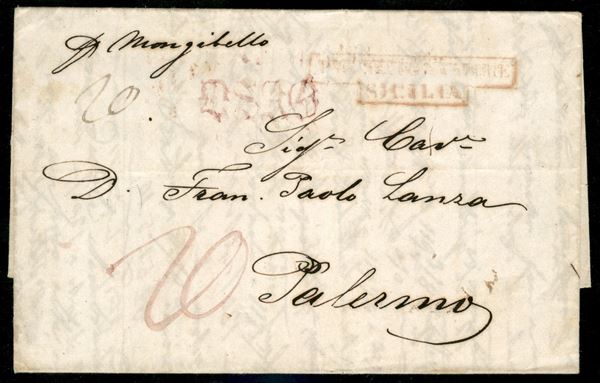 pr Mongibello
20.
SICILIA
Sigr. Cavr.
D. Fran. Paolo Lanza
Palermo
20